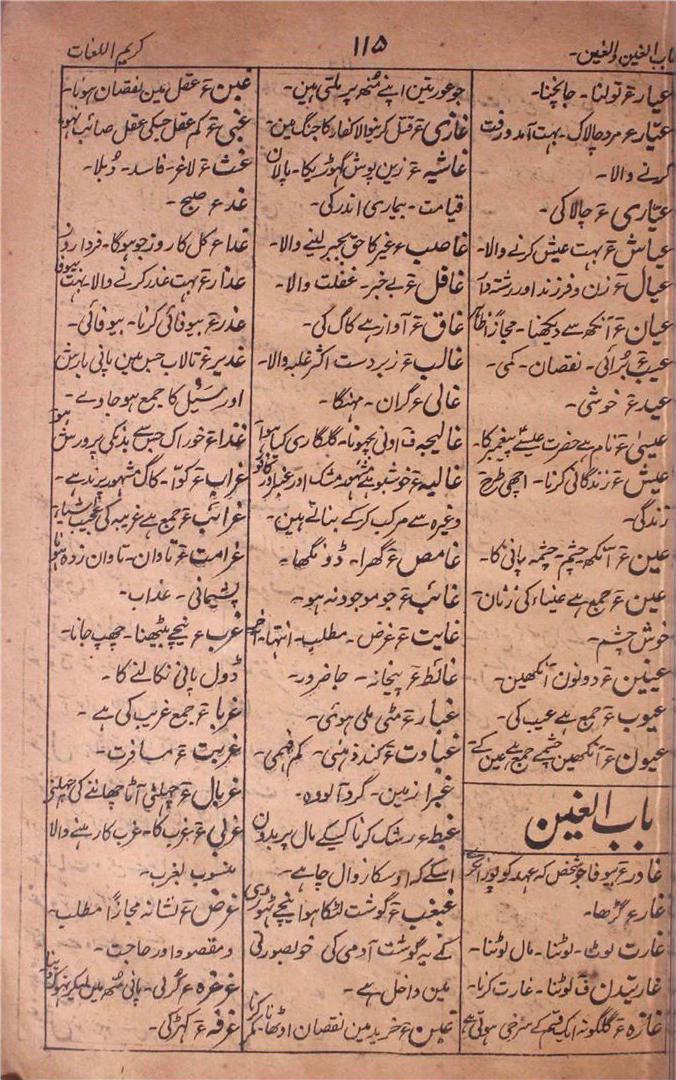 باب العین والغین۔
۱۱۵
کریم اللغات
عیار ؏ تولنا۔ جانچنا۔
عیّار ؏ مرد چالاک۔ بہت آمد و رفت
کرنے والا۔
عیّاری ؏ چالاکی۔
عیاش ؏ بہت عیش کرنے والا۔
عیال ؏ زن و فرزند اور رشتہ دار
عیان ؏ آنکھ سے دیکھنا۔ مجازاً ظاہر
عیب ؏ برائی۔ نقصان۔ کمی۔
عید ؏ خوشی۔
عیسیٰ ؏ نام ہے حضرت عیسے پیغمبر کا۔
عیش ؏ زندگانی کرنا۔ اچھی طرح
زندگی۔
عین ؏ آنکھ۔ چشم۔ چشمہ پانی کا۔
عین ؏ جمع ہے عیناء کی زنان
خوش چشم۔
عینین ؏ دونون آنکھین۔
عیوب ؏ جمع ہے عیب کی۔
عیون ؏ آنکھین چشمے جمع ہے عین کے
باب الغین
غادر ؏ بیوفا۔ جو شخص کہ عہد کو پورا نکرے
غار ؏ گڑھا۔
غارت لوٹ۔ لوٹنا۔ مال لوٹنا۔
غارتیدن ف لوٹنا۔ غارت کرنا۔
غازہ ؏ گلگونہ ایک قسم کے سرخی ہوتی ہے
جو عورتین اپنے منھ پر ملتی ہین۔
غازی ؏ قتل کرنیوالا کفار کا جنگ مین۔
غاشیہ ؏ زین پوش گھوڑیکا۔ پالان
قیامت۔ بیماری اندر کی۔
غاصب ؏ غیر کا حق بجبر لینے والا۔
غافل ؏ بے خبر۔ غفلت والا۔
غاق ؏ آواز ہے کاگ کی۔
غالب ؏ زبردست اکثر غلبہ والا۔
غالی ؏ گران۔ مہنگا۔
غالیچہ ف اونی بچھونا۔ گلکاری کیا ہوا
غالیہ ؏ خوشبو ہے مشہور مشک اور عنبر اور کافور
وغیرہ سے مرکب کر کے بناتے ہین۔
غامص ؏ گہرا۔ ڈونگھا۔
غائب ؏ جو موجود نہ ہو۔
غایت ؏ غرض۔ مطلب۔ انتہا۔ آخر
غائط ؏ پیخانہ۔ جا ضرور۔
غبار ؏ مٹی ملی ہوئی۔
غباوت ؏ کند ذہنی۔ کم فہمی۔
غبرا زمین۔ گرد آلودہ۔
غبط ؏ رشک کرنا کسیکے مال پر بدون
اسکے کہ اوسکا زوال چاہے۔
غبغب ؏ گوشت لٹکا ہوا نیچے ٹھوڑی
کے یہ گوشت آدمی کی خوبصورتی
مین داخل ہے۔
غبن ؏ خرید مین نقصان اوٹھانا۔ مکر کرنا
غبن ؏ عقل مین نقصان ہونا۔
غبی ؏ کم عقل جسکی عقل صائب نہو
غث ؏ لاغر۔ فاسد۔ دبلا۔
غد ؏ صبح۔
غدا ؏ کل کا روز جو ہوگا۔ فردا روز
غدار ؏ بہت غدر کرنے والا بہت بیوفا
غدر ؏ بیوفائی کرنا۔ بیوفائی۔
غدیر ؏ تالاب جس مین پانی بارش
اور سیل کا جمع ہو جاوے۔
غذا ؏ خوراک جس سے بدنکی پرورش ہو
غراب ؏ کوّا۔ کاگ مشہور پرند ہے۔
غرائب ؏ جمع ہے غریبہ کی عجیب اشیاء
غرامت ؏ تاوان۔ تاوان زدہ ہونا
پشیمانی۔ عذاب۔
غرب ؏ نیچے بیٹھنا۔ چھپ جانا۔
ڈول پانی نکالنے کا۔
غربا ؏ جمع غریب کی ہے۔
غربت ؏ مسافرت۔
غربال ؏ چھلنی آٹا چھاننے کی چھلنی
غربی ؏ غرب کا۔ غرب کا رہنے والا
منسوب لغرب۔
غرض ؏ نشانہ مجازاً مطلب۔
و مقصود اور حاجت۔
غرغرہ ؏ کرلی۔ پانی منھ مین لیکر
غرفہ ؏ کھڑکی۔